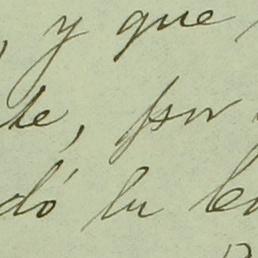 , y que
te, por
dó lu